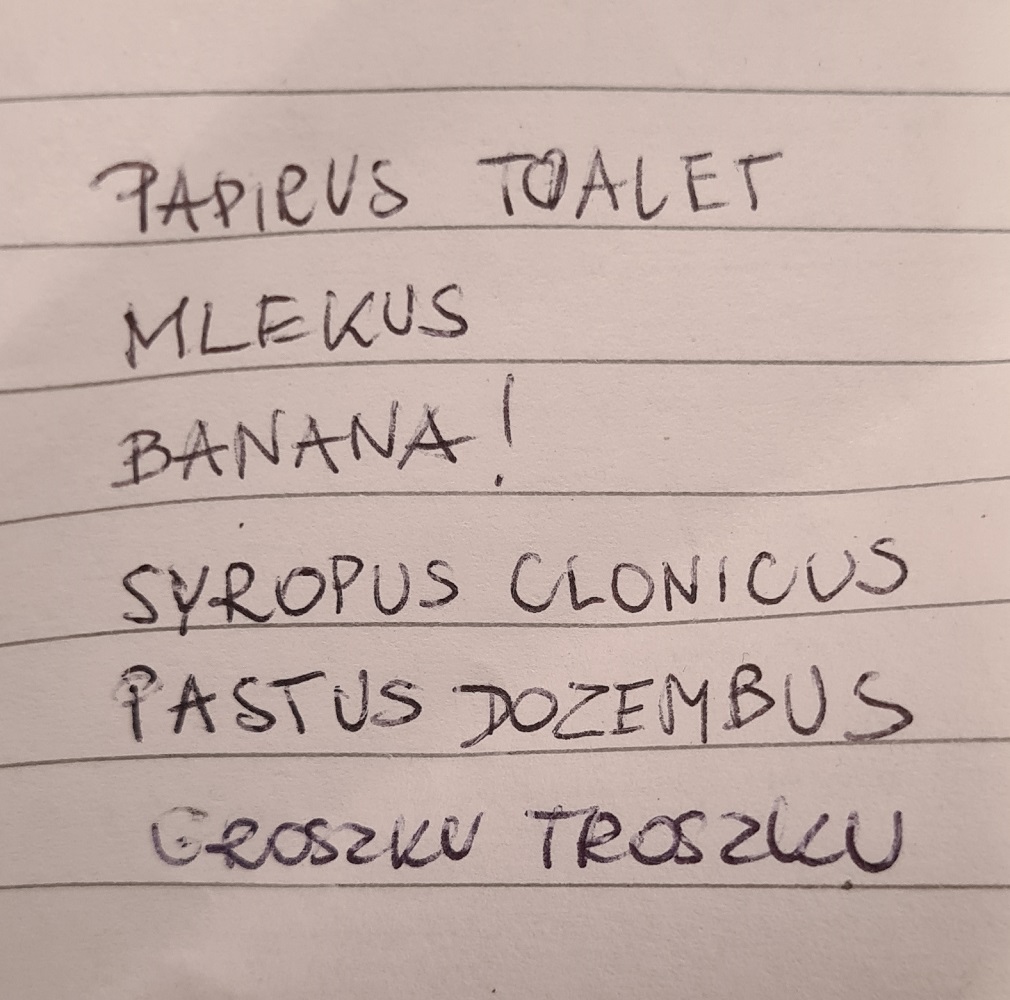 PAPIRUS TOALET
MLEKUS
BANANA!
SYROPUS CLONICUS
PASTUS DOZEMBUS
GROSZKU TROSZKU